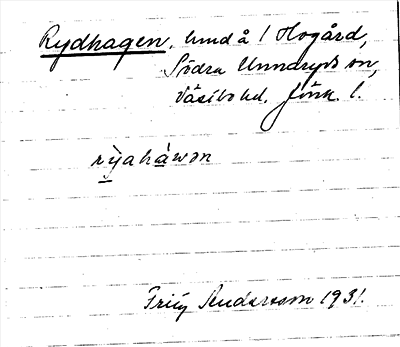 Rydhagen, lund å 1 Hogård,
Södra Unnaryds sn,
Västbo hd, Jönk. l.
rỳahàwən
Fritz Andersson 1931.